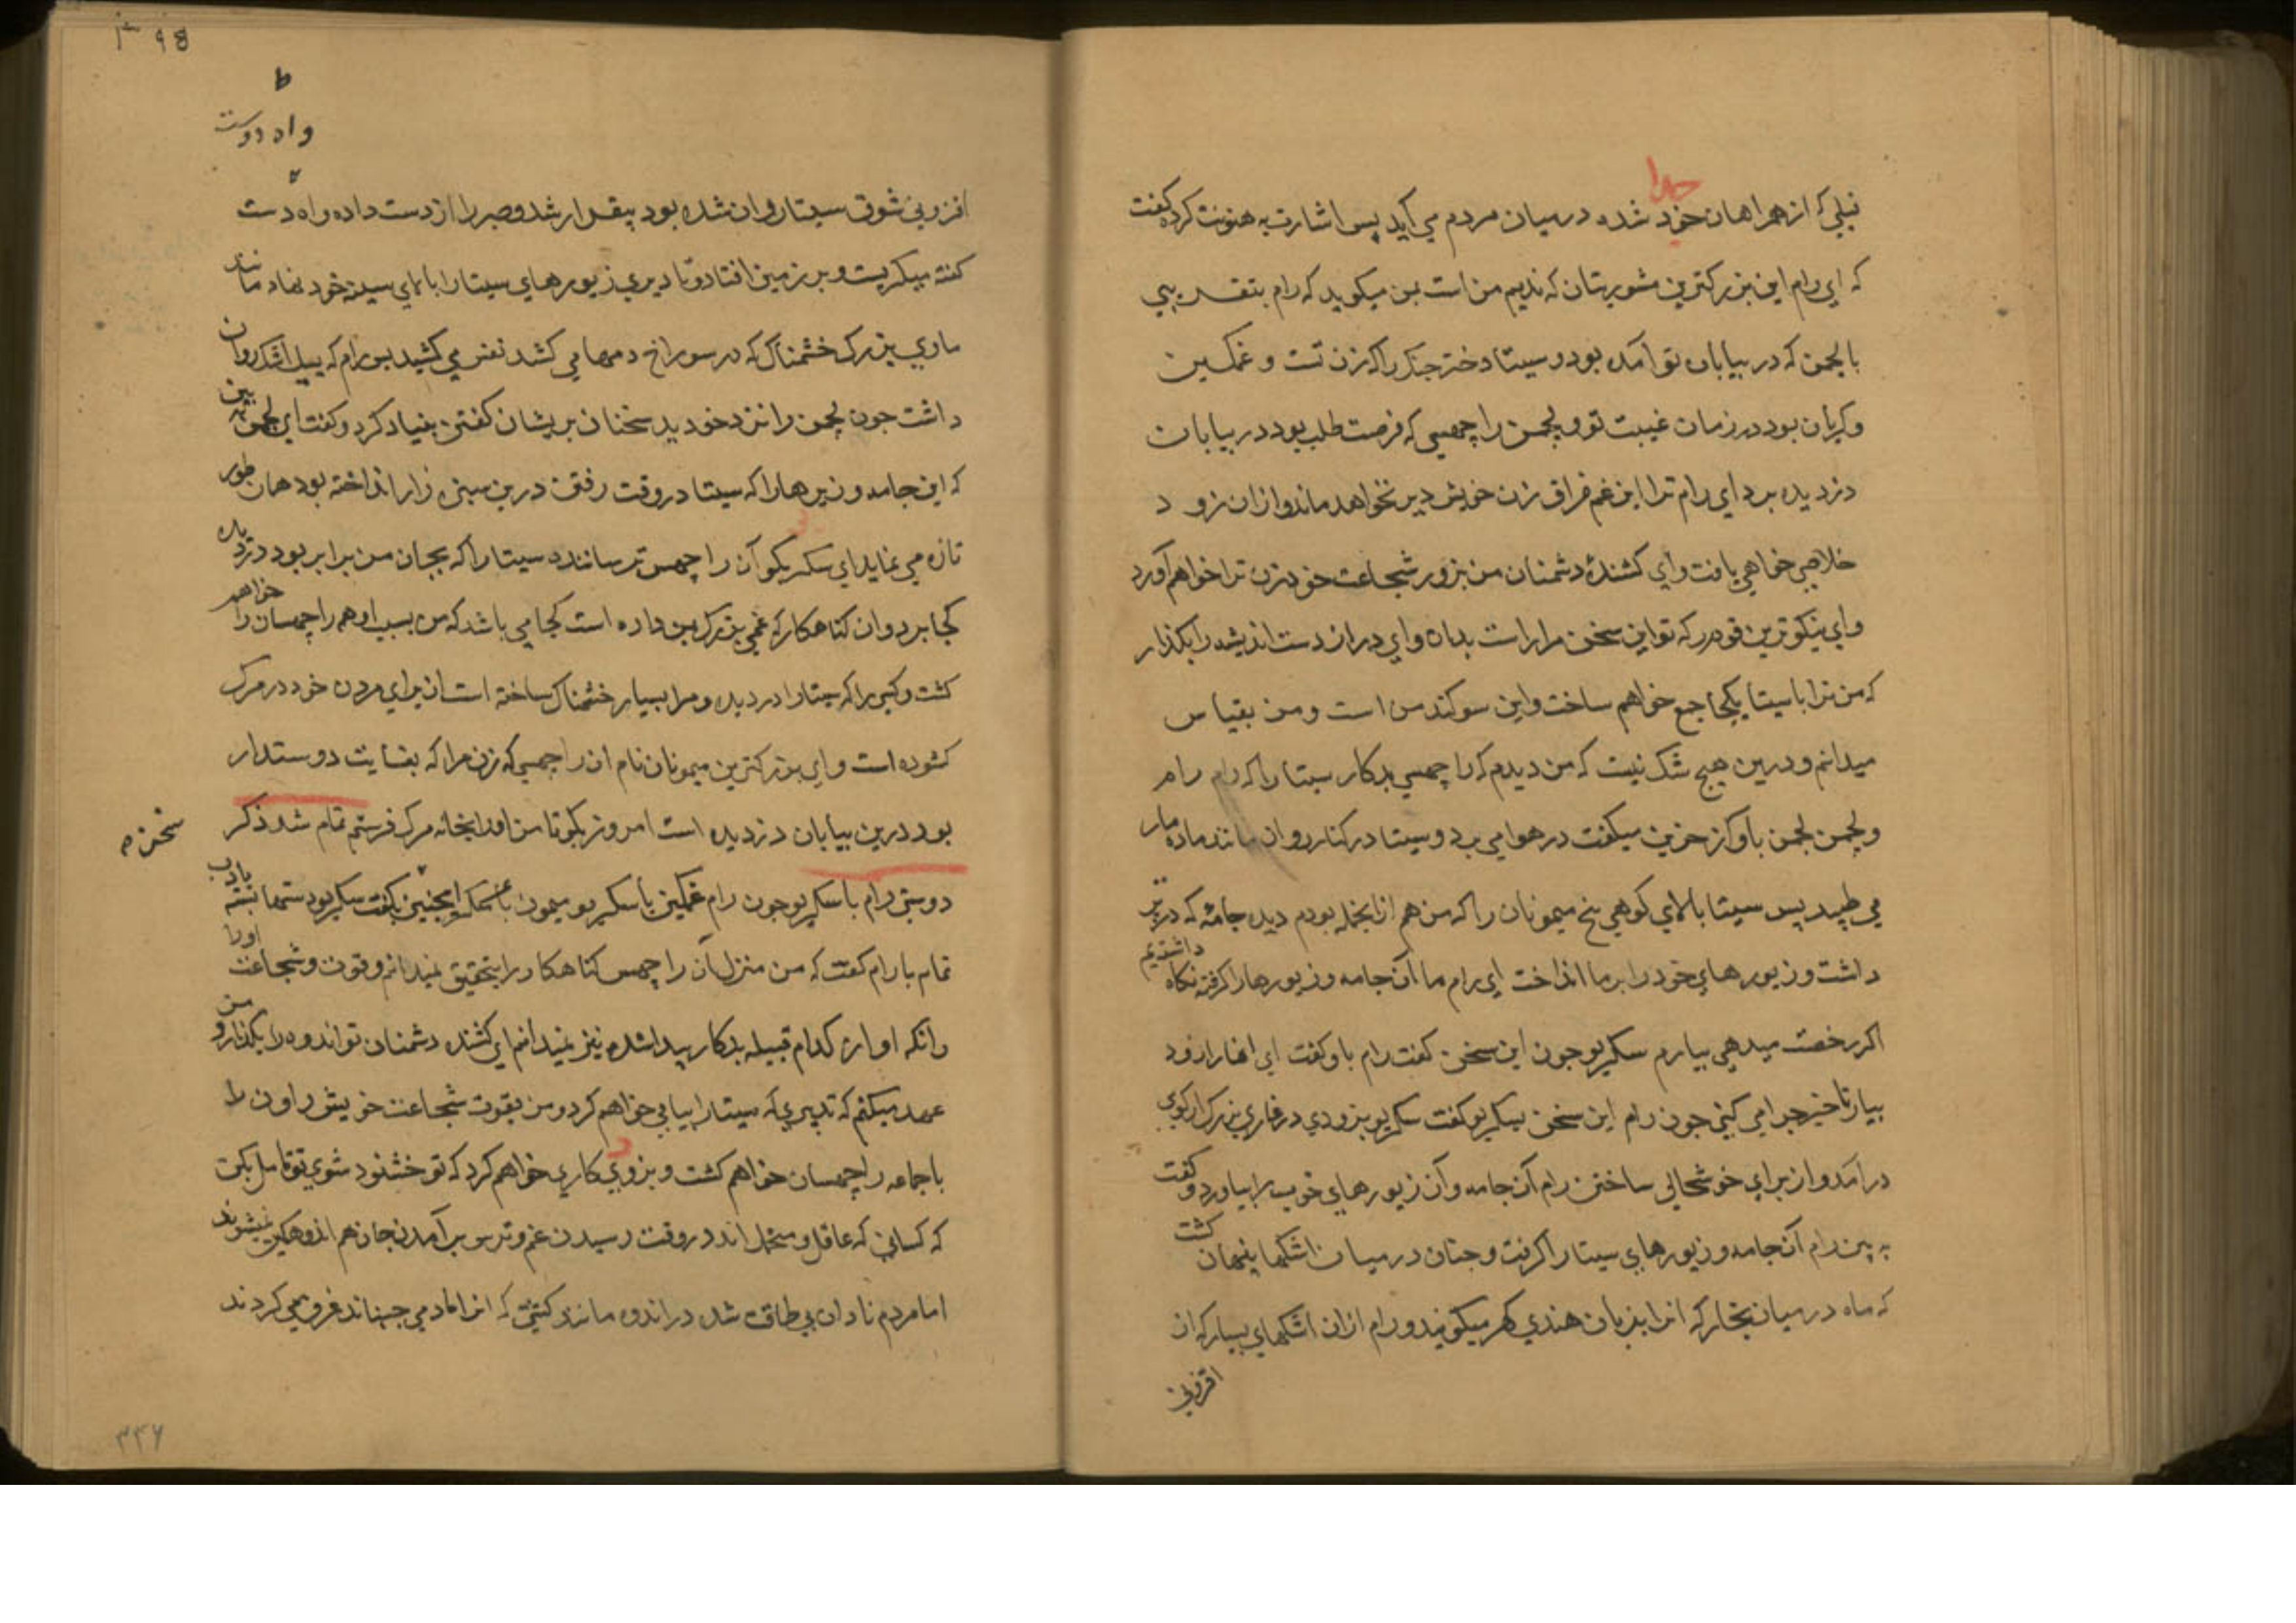 جدا
فیلی که از همراهان خود شده درمیان مردم می آید پس اشارت به هنونت کرده گفت
که ای رام این بزرکترین مشورتیان که ندیم من است بمن میکوید که رام بتقریبی
با لچمن که در بیابان تو آمده بود و سیتا دختر جنک را که زن تست و غمکین
وکریان بود در زمان غیبت تو و لچمن راچهسی که فرصت طلب بود در بیابان
دزدیده برد ای رام ترا این غم فراق زن خویش دیر نخواهد ماند و ازان زود
خلاصی خواهی یافت و ای کشندهٔ دشمنان من بزور شجاعت خود زن ترا خواهم آورد
وای نیکوترین که تو این سخن مرا راست بدان وای دراز دست اندیشه را بکذار
که من ترا با سیتا یکجا جمع خواهم ساخت و این سوکند من است و من بقیاس
میدانم و درین هیچ شک نیست که من دیدم که راچهسی بدکار سیتا را که رام رام
و لچمن لچمن بآواز حزین میکفت در هوا می برد و سیتا در کنار روان مانند ماده مار
می طپید پس سیتا بالای کوهی پنج میمونان را که من هم ازانجمله بودم دیده جامهٔ که در بر
داشت و زیورهای خود را بر ما انداخت ای رام ما آن جامه و زیورها را کرفته نکاه
داشتیم
اکر رخصت میدهی بیارم سکریو چون این سخن کفت رام باو کفت ای انها را زود
بیار تاخیر چرا می کنی چون رام این سخن بسکریو کفت سکریو بزودی در غاری بزرک از کوی
درآمد و از برای خوشحالی ساختن رام آن جامه و آن زیورهای خوب را بیاورد و کفت
به بین رام آن جامه و زیورهای سیتا را کرفت و چنان درمیان اشکها پنهان کشت
که ماه درمیان بخار که انرا بزبان هندی کهر میکویند و رام ازان اشکهای بسیار که از
افزونی
98
واه دوست
افزونی شوق سیتا روان شده بود بیقرار شد و صبر را از دست داده واه دست
کفته میکریست و بر زمین افتاد و تا دیری زیورهای سیتا را بالای سینه خود نهاد مانند
ماری بزرک خشمناک که در سوراخ دمها می کشد نفس می کشید پس رام که سیل اشک روان
داشت چون لچمن را نزد خود دید سخنان پریشان کفتن بنیاد کرد و کفت ای لچمن به بین
که این جامه و زیرها را که سیتا در وقت رفتن درین سبزه زار انداخته بود همان طور
تازه می نماید ای سکریو بکو آن راچهس ترساننده سیتا را که بجان من برابر بود دزدیده
کجا برد و ان کناهکار که غمی بزرک بمن داده است کجا می باشد که من بسبب او همه راچهسان را خواهم
کشت و کسی را که سیتا را دزدیده و مرا بسیار خشمناک ساخته است از برای مردن خود در مرک
کشوده است و ای بزرکترین میمونان نام ان راچهسی که زن مرا که بغایت دوستدار
بود درین بیابان دزدیده است امروز بکو تا من او را بخانه مرک فرستم تمام شد ذکر
سخن
دوستی رام با سکریو چون رام غمکین با سکریو میمون این چنین بکفت سکریو دستها بسته بادب
تمام با رام کفت که من منزل آن راچهس کناهکار را بتحقیق نمیدانم و قوت و شجاعت او را
وانکه او از کدام قبیله بدکار پیدا شده نیز نمیدانم ای کشنده دشمنان تو اندوه را بکذار و من
عهد میکنم که تدبیری که سیتا را بیابی خواهم کرد و من بقوت شجاعت خویش راون را
با جماعه راچهسان خواهم کشت و بزودی کاری خواهم کرد که تو خشنود شوی تو تامل بکن
که کسانی که عاقل و متحمل اند در وقت رسیدن غم و ترس برآمدن جان هم اندوهکین نمیشوند
اما مردم نادان بی طاقت شده در اندوه مانند کشتی که انرا باد می جنباند فرو می کردند
۳۴۶